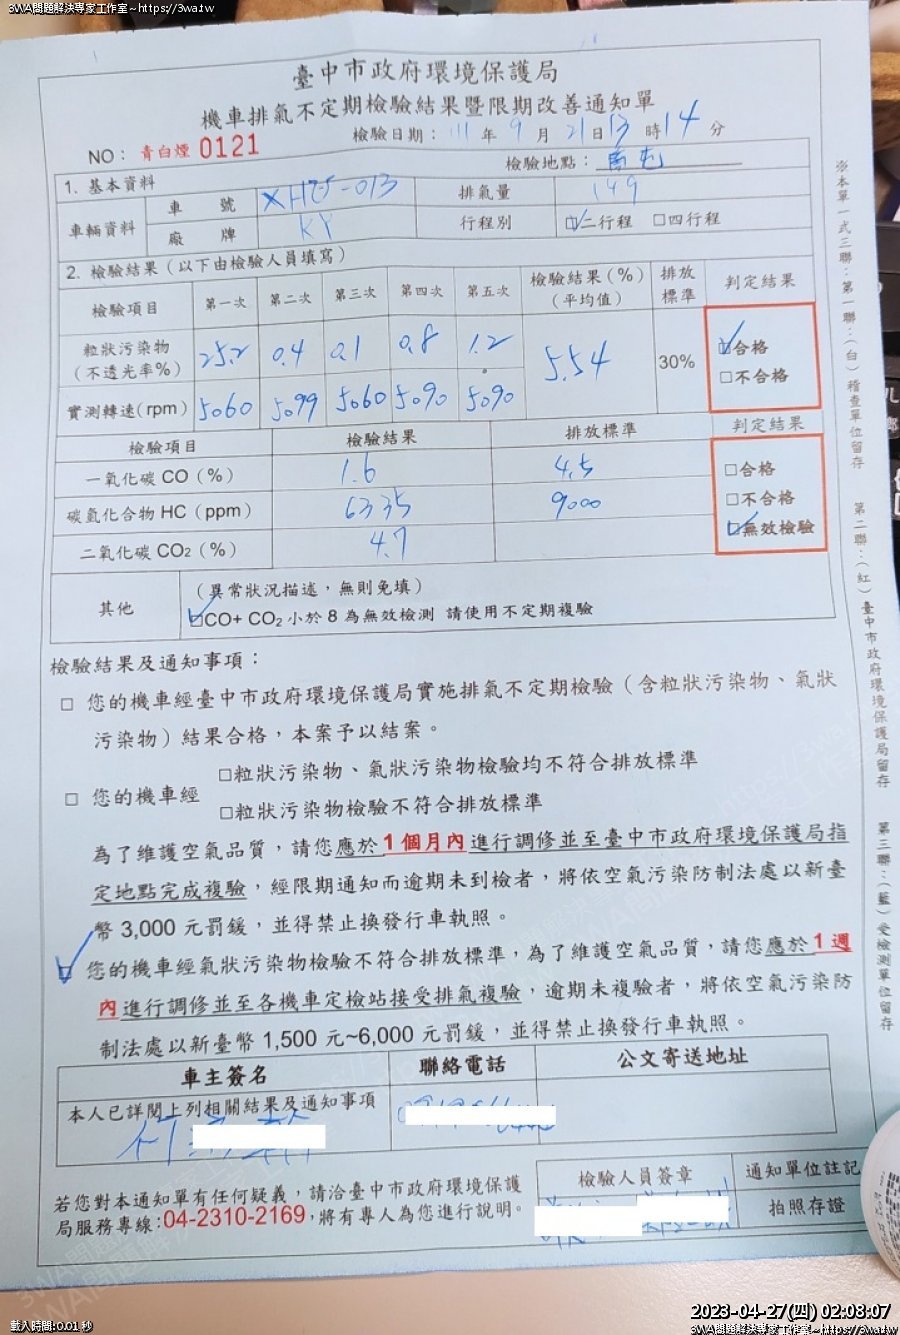 3WA問題解決專家工作室~https://3wa.tw
臺中市政府環境保護局
機車排氣不定期檢驗結果暨限期改善通知單
檢驗日期: 111 年 9 月 21 日 13 時 14 分
NO: 青白煙 0121
檢驗地點: 南屯
1. 基本資料
車輛資料 車 號 排氣量 149
廠 牌 KY 行程別 ☑二行程 □四行程
2. 檢驗結果(以下由檢驗人員填寫)
檢驗項目 第一次 第二次 第三次 第四次 第五次 檢驗結果(%)(平均值) 排放標準 判定結果
粒狀污染物(不透光率%) 25.2 0.4 0.1 0.8 1.2 5.54 30% ☑合格
□不合格
實測轉速(rpm) 5060 5099 5060 5090 5090
檢驗項目 檢驗結果 排放標準 判定結果
一氧化碳 CO(%) 1.6 4.5 □合格
碳氫化合物 HC(ppm) 6335 9000 □不合格
二氧化碳 CO2(%) 4.7 ☑無效檢驗
其他 (異常狀況描述,無則免填)
☑CO+ CO2 小於 8 為無效檢測 請使用不定期複驗
檢驗結果及通知事項:
□ 您的機車經臺中市政府環境保護局實施排氣不定期檢驗(含粒狀污染物、氣狀
污染物)結果合格,本案予以結案。
□ 您的機車經 □粒狀污染物、氣狀污染物檢驗均不符合排放標準
□粒狀污染物檢驗不符合排放標準
為了維護空氣品質,請您應於 1 個月內 進行調修並至臺中市政府環境保護局指
定地點完成複驗,經限期通知而逾期未到檢者,將依空氣污染防制法處以新臺
幣 3,000 元罰鍰,並得禁止換發行車執照。
☑ 您的機車經氣狀污染物檢驗不符合排放標準,為了維護空氣品質,請您應於 1 週
內進行調修並至各機車定檢站接受排氣複驗,逾期未複驗者,將依空氣污染防
制法處以新臺幣 1,500 元~6,000 元罰鍰,並得禁止換發行車執照。
車主簽名 聯絡電話 公文寄送地址
本人已詳閱上列相關結果及通知事項
檢驗人員簽章 通知單位註記
拍照存證
若您對本通知單有任何疑義,請洽臺中市政府環境保護
局服務專線:04-2310-2169,將有專人為您進行說明。
※本單一式三聯:第一聯:(白)稽查單位留存 第二聯:(紅)臺中市政府環境保護局留存 第三聯:(藍)受檢測單位留存
載入時間:0.01 秒
2023-04-27(四) 02:08:07
3WA問題解決專家工作室~https://3wa.tw